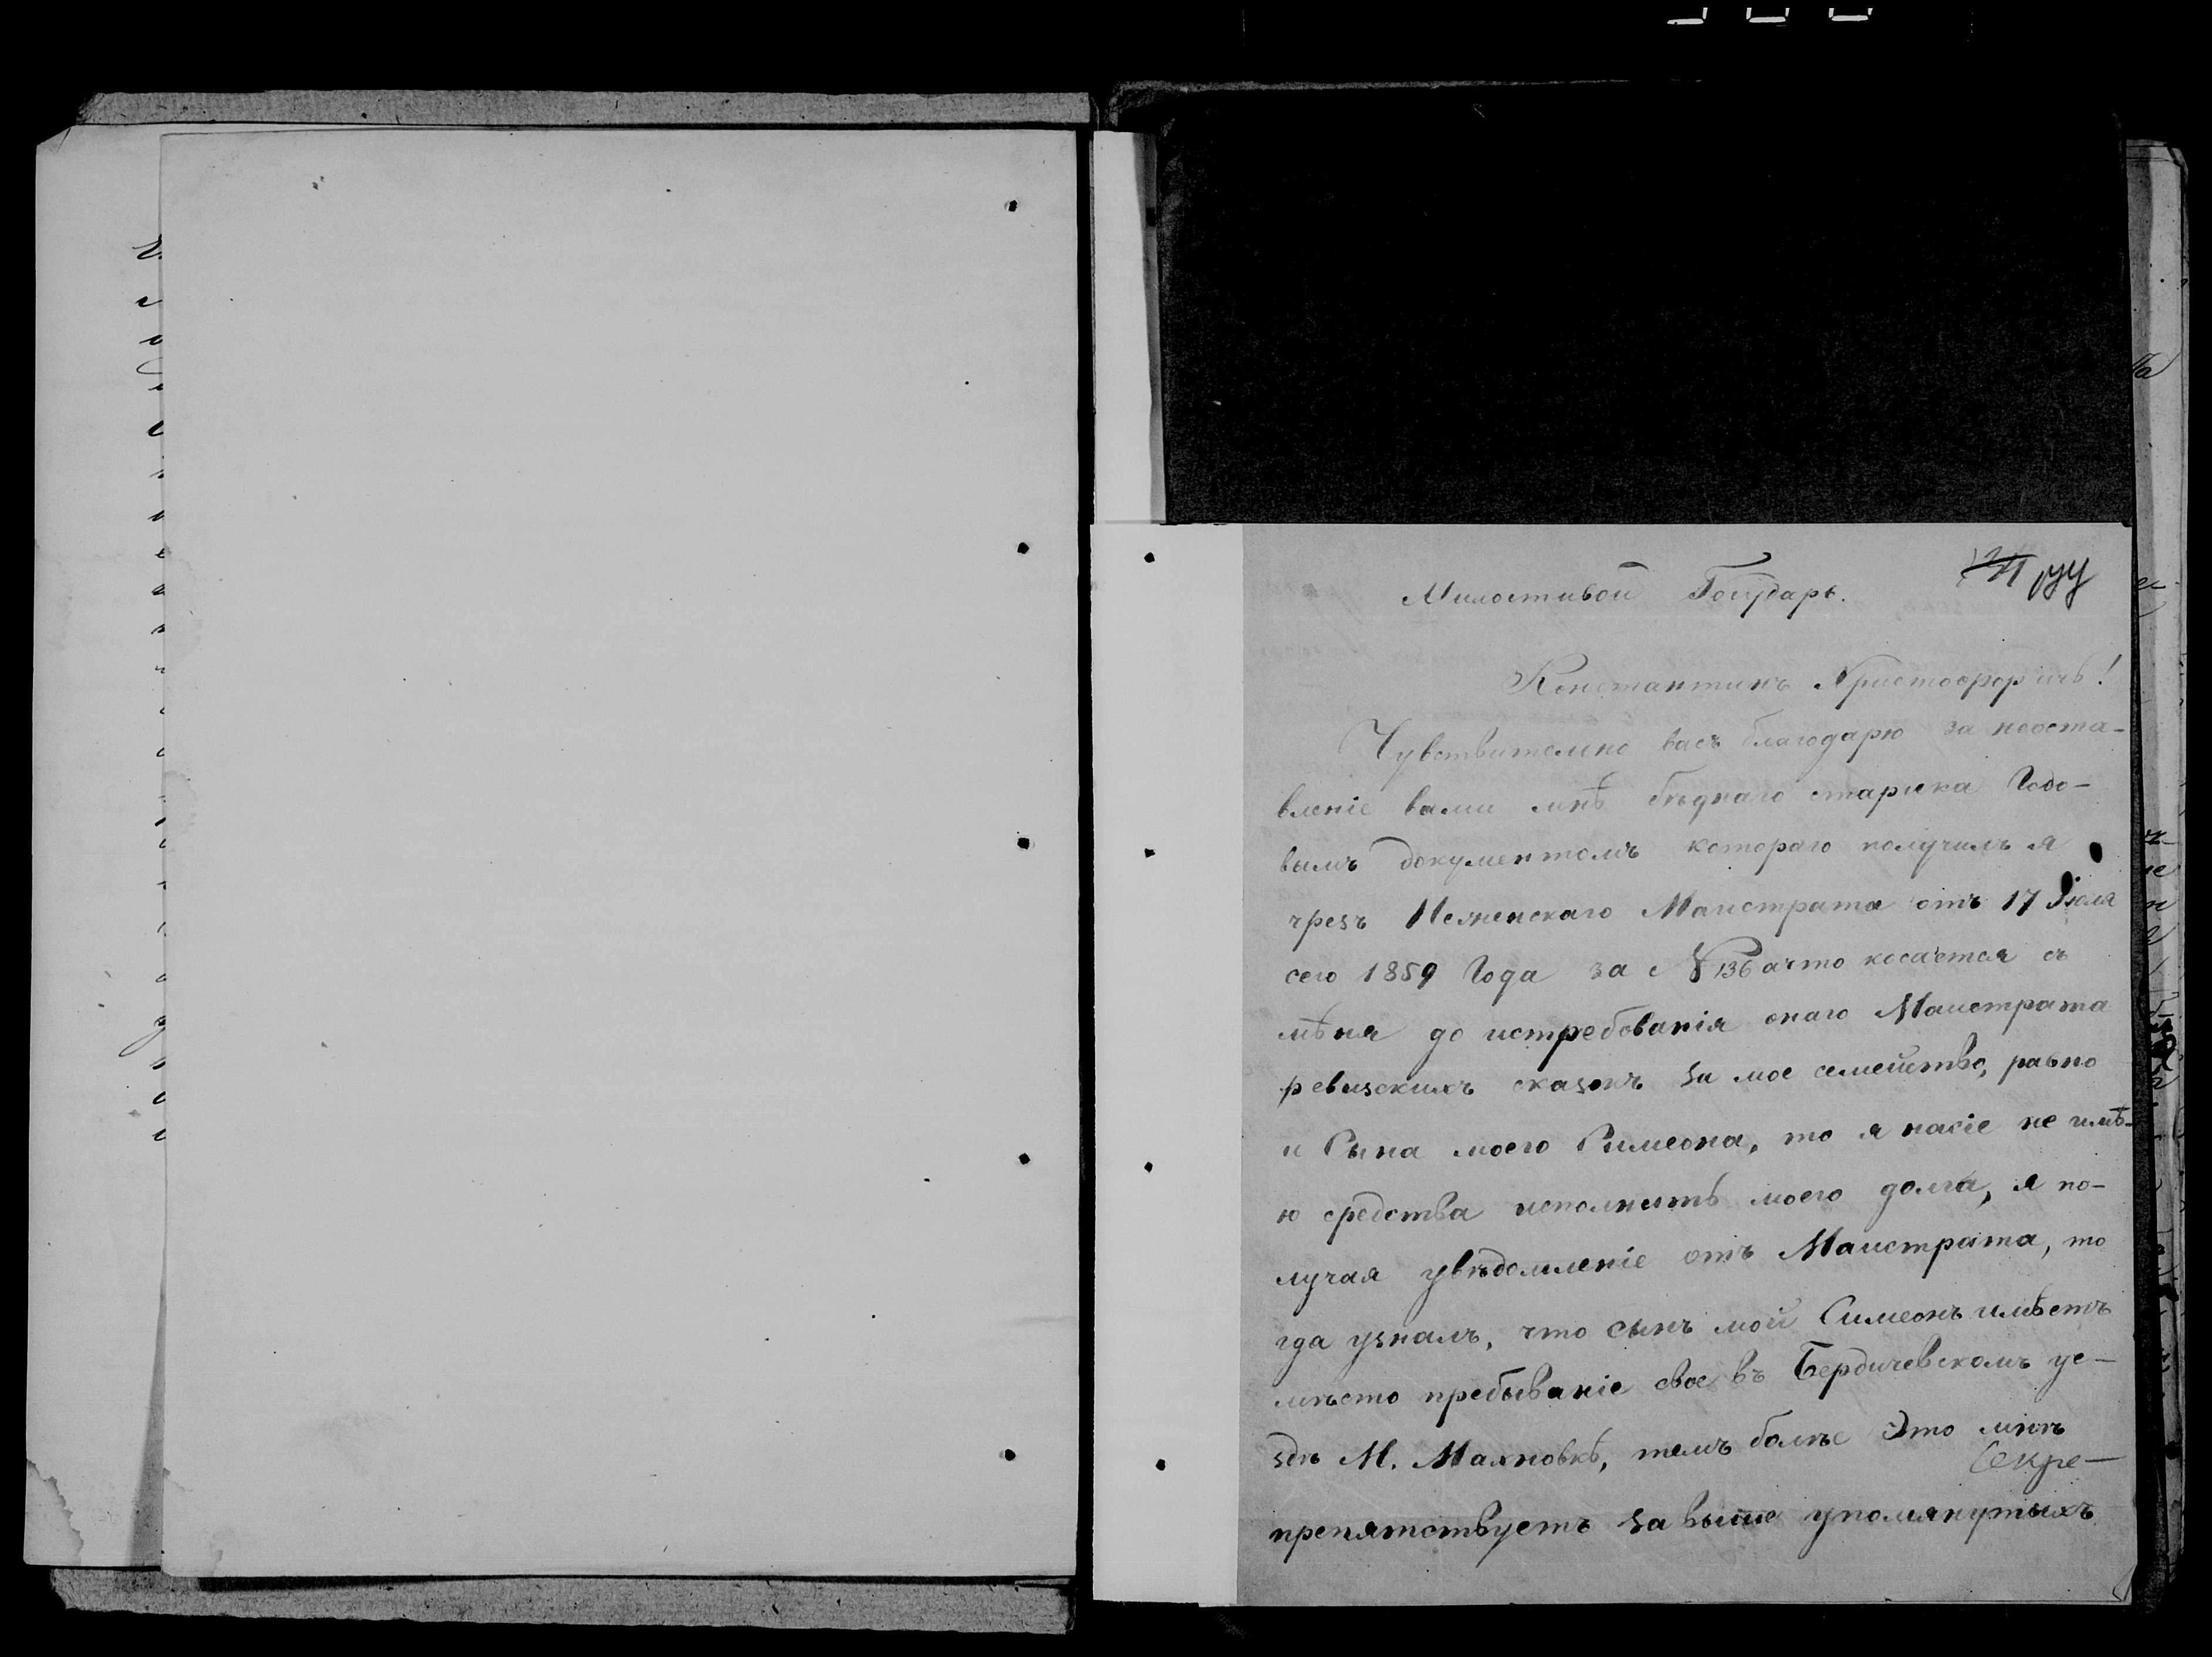 Милостивой Государь.
Константинъ Христофоричъ!
Чувствително васъ благодарю за неоста-
вленіе вами мнѣ бѣднаго старика Годо-
вымъ документомъ котораго получилъ я
чрезъ Неженскаго Маистрата отъ 17 Іюля
сего 1859 Года за № 136 ачто косается съ
мѣня до истребованія онаго Маистрата
ревизскихъ сказокъ за мое семейтво, равно
и Сына моего Симеона, то я насіе не имѣ-
ю средства исполнить моего долга, я по-
лучая увѣдомленіе отъ Маистрата, то
гда узналъ, что сынъ мой Симеонъ имѣетъ
мѣсто пребываніе свое въ Бердичевскомъ уе-
здѣ М. Махновкѣ, темъ болѣе Это мнѣ
Секре-
препятствуетъ за выше упомянутыхъ